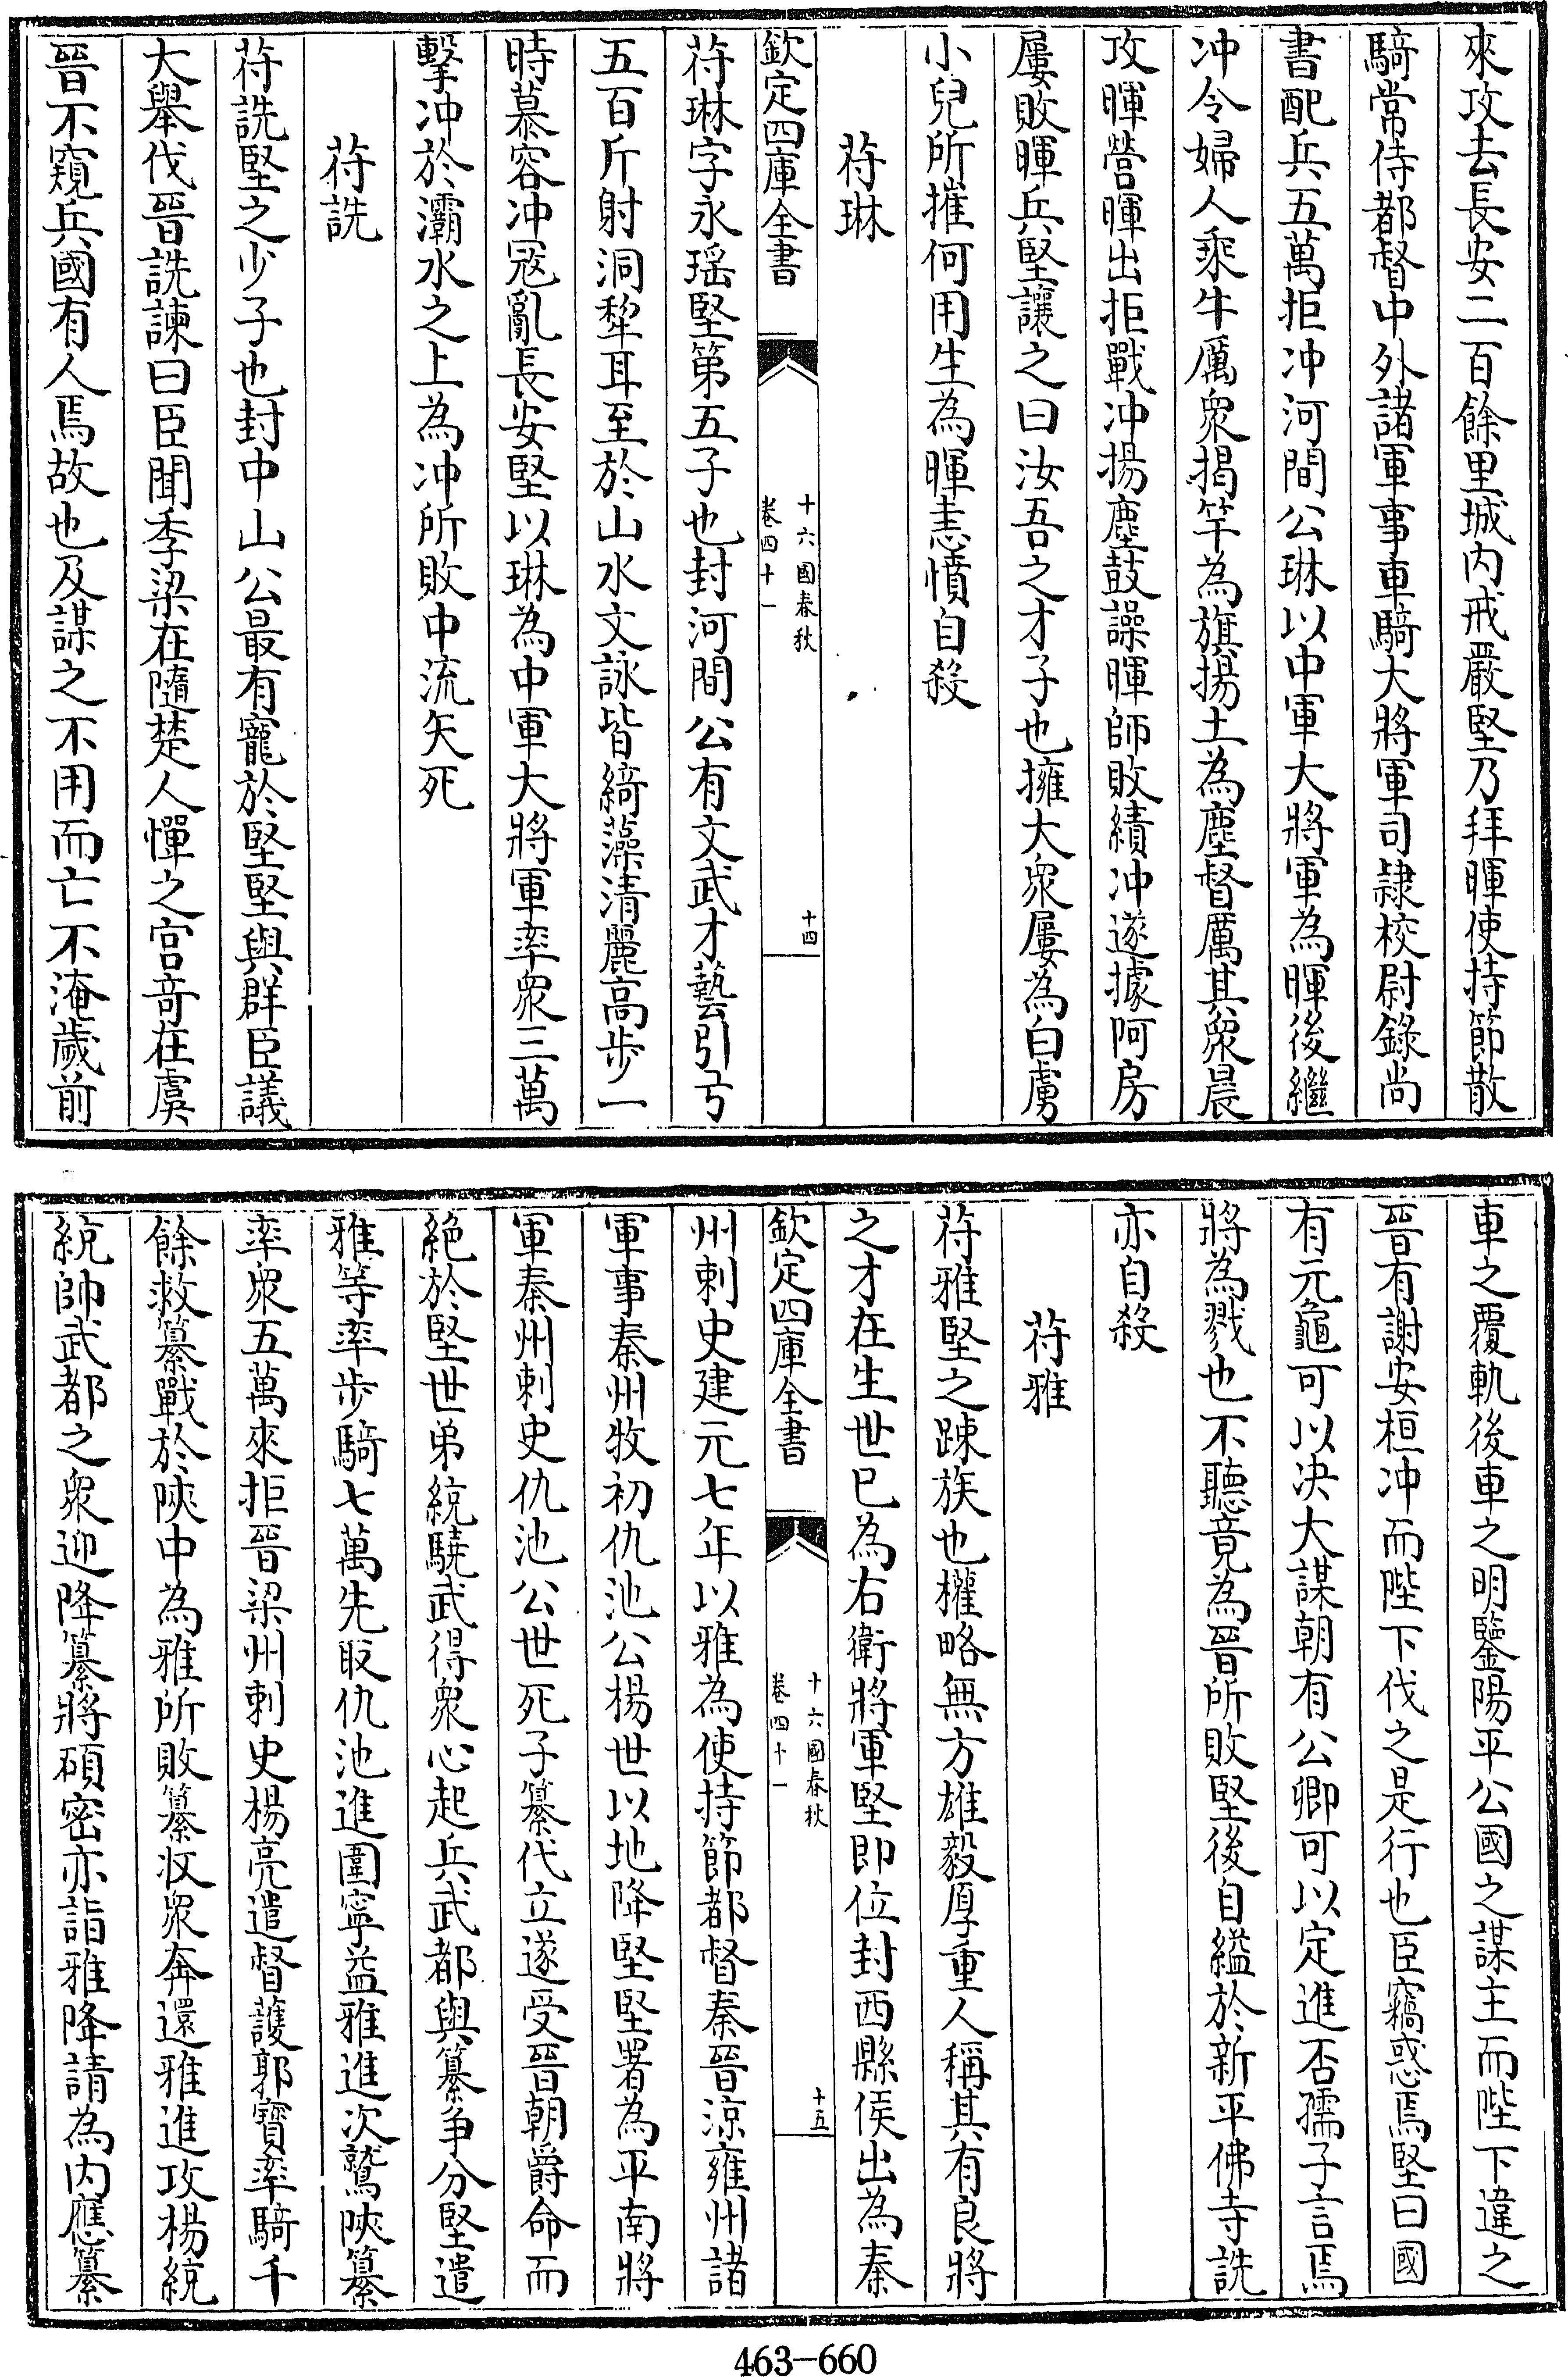 來攻去長安二百餘里城内戒嚴堅乃拜暉使持節散
騎常侍都督中外諸軍事車騎大將軍司隷校尉錄尚
書配兵五萬拒冲河間公琳以中軍大將軍為暉後繼
冲令婦人乘牛厲衆揭竿為旗揚土為塵督厲其衆晨
攻暉營暉出拒戰冲揚塵鼓譟暉師敗績冲遂據阿房
屢敗暉兵堅讓之曰汝吾之才子也擁大衆屢為白虜
小兒所摧何用生為暉恚憤自殺
苻琳
欽定四庫全書
十六國春秋
卷四十一
十四
苻琳字永瑶堅第五子也封河間公有文武才藝引弓
五百斤射洞犂耳至於山水文詠皆綺藻清麗高步一
時慕容冲冦亂長安堅以琳為中軍大將軍率衆三萬
擊冲於灞水之上為冲所敗中流矢死
苻詵
苻詵堅之少子也封中山公最有寵於堅堅與群臣議
大舉伐晉詵諫曰臣聞季梁在隨楚人憚之宫竒在虞
晉不窺兵國有人焉故也及謀之不用而亡不淹歲前
車之覆軌後車之明鑒陽平公國之謀主而陛下違之
晉有謝安桓冲而陛下伐之是行也臣竊惑焉堅曰國
有元龜可以决大謀朝有公卿可以定進否孺子言焉
將為戮也不聽竟為晉所敗堅後自縊於新平佛寺詵
亦自殺
苻雅
苻雅堅之踈族也權略無方雄毅厚重人稱其有良將
之才在生世已為右衛將軍堅即位封西縣侯出為秦
欽定四庫全書
十六國春秋
卷四十一
十五
州刺史建元七年以雅為使持節都督秦晉涼雍州諸
軍事秦州牧初仇池公楊世以地降堅堅署為平南將
軍秦州刺史仇池公世死子纂代立遂受晉朝爵命而
絶於堅世弟統驍武得衆心起兵武都與纂争分堅遣
雅等率步騎七萬先取仇池進圍寧益雅進次鷲陜纂
率衆五萬來拒晉梁州刺史楊亮遣督護郭寶率騎千
餘救纂戰於陜中為雅所敗纂收衆奔還雅進攻楊統
統帥武都之衆迎降纂將碩密亦詣雅降請為内應纂
463-660